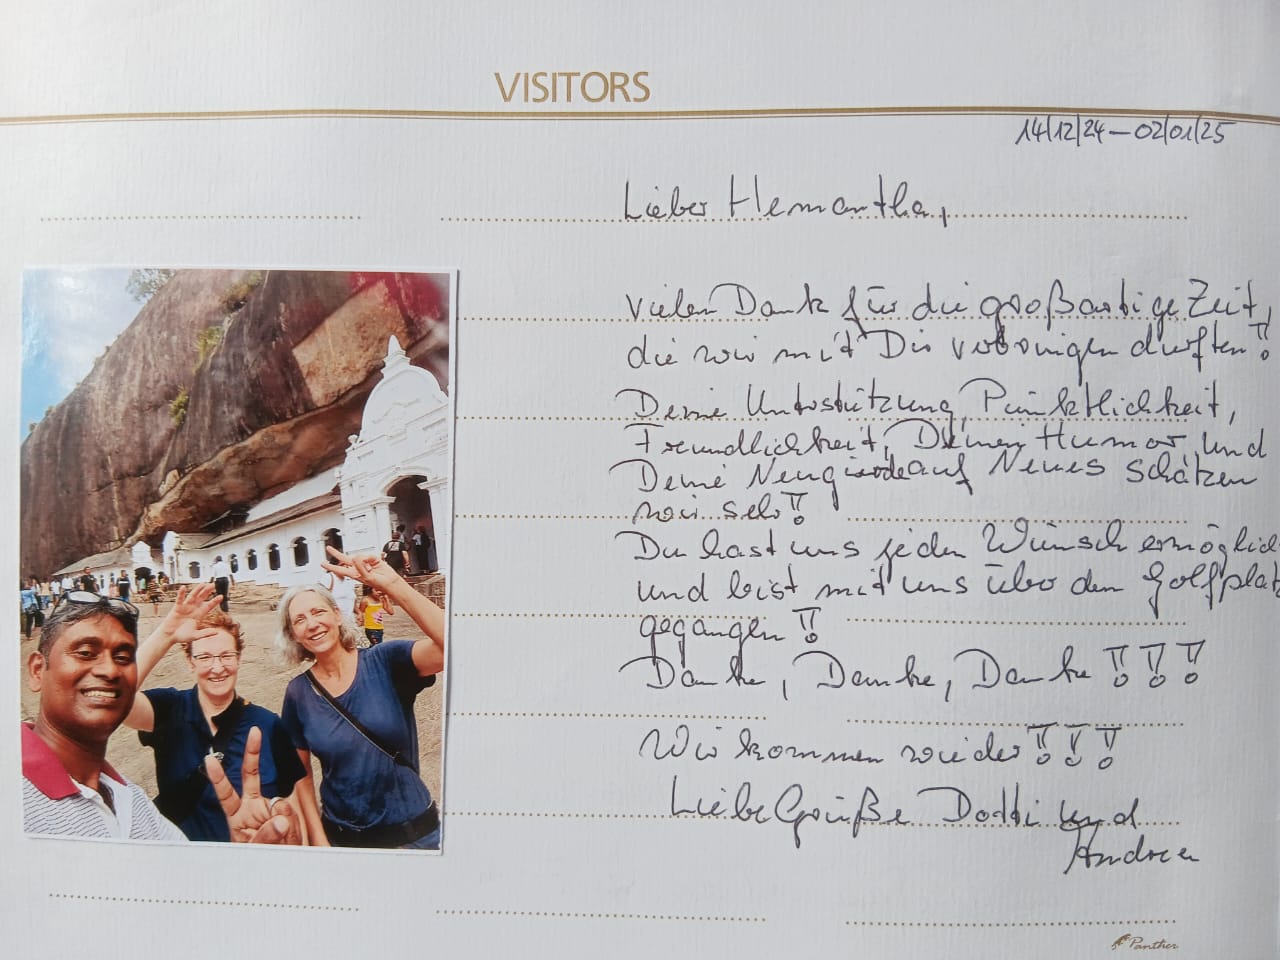 VISITORS
14/12/24 – 02/01/25
Lieber Hemantha,
vielen Dank für die großartige Zeit,
die wir mit Dir verbringen durften!!
Deine Unterstützung, Pünktlichkeit,
Freundlichkeit, Deinen Humor und
Deine Neugierde auf Neues schätzen
wir sehr!!
Du hast uns jeden Wunsch ermöglich
und bist mit uns über den Golfplatz
gegangen!!
Danke, Danke, Danke!!!
Wir kommen wieder!!!
Liebe Grüße Dotti und
Andrea
Panther